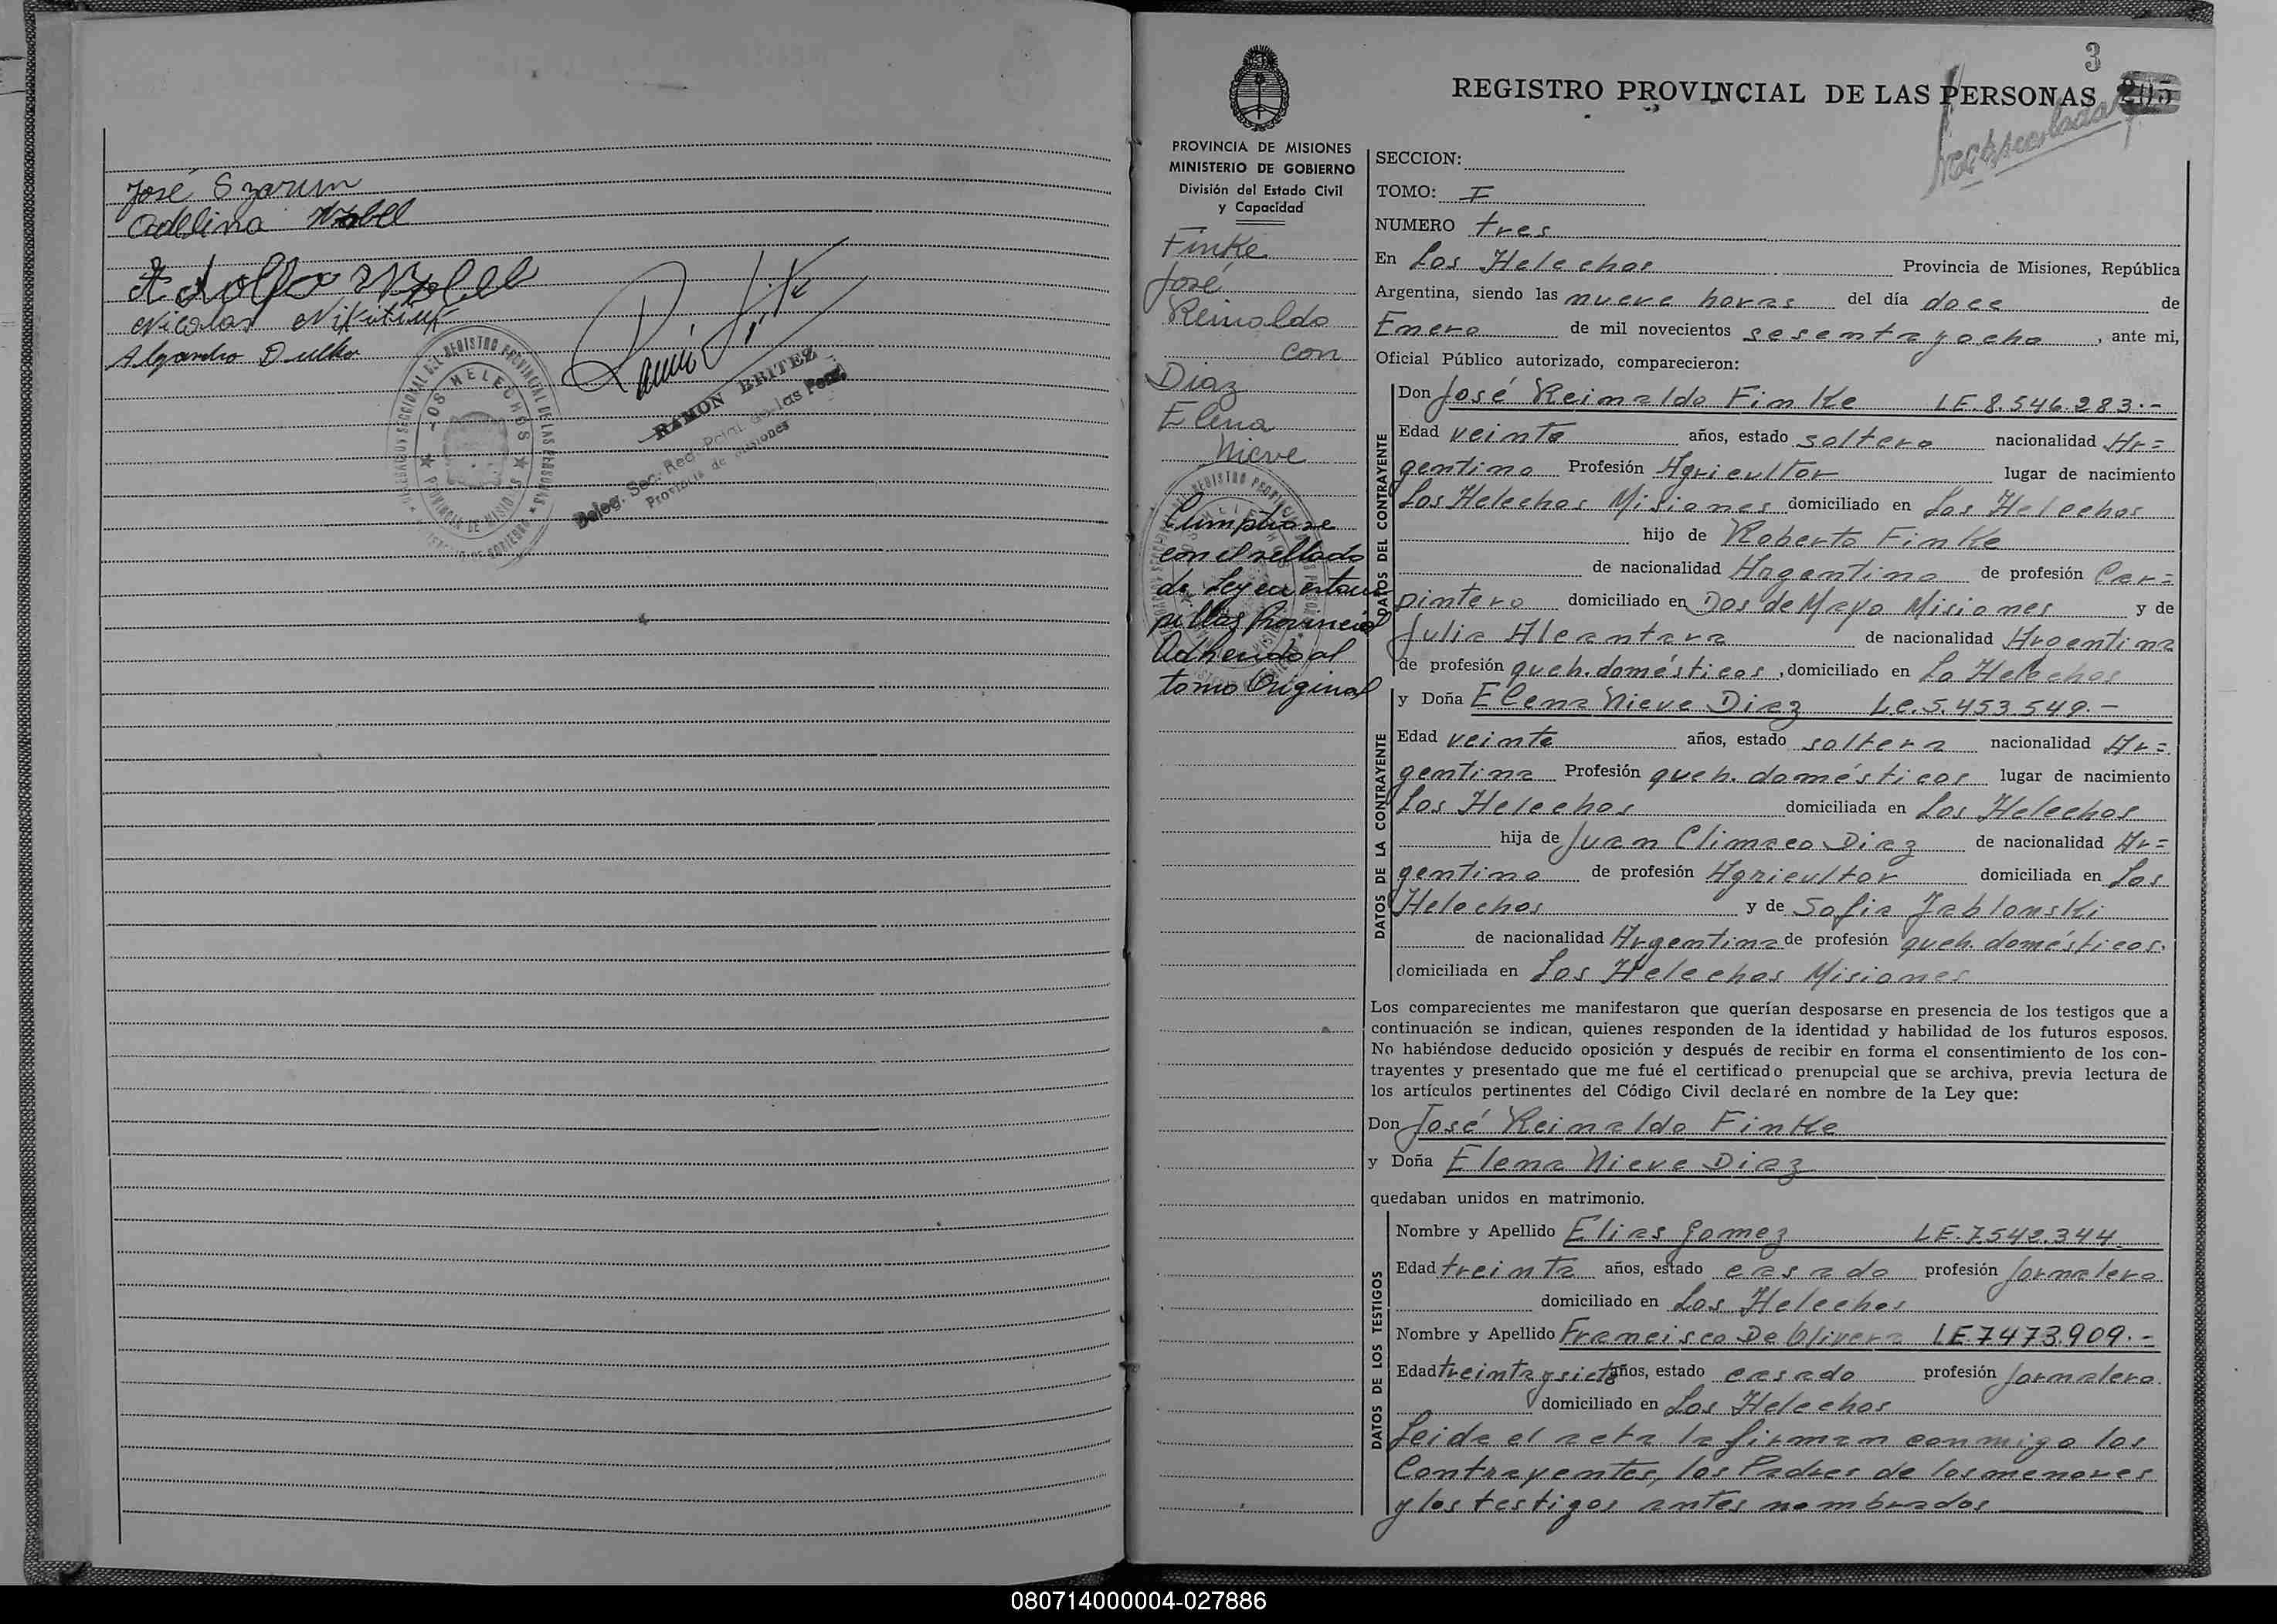 José Szarun
Adelina
Adolfo
Nicolas Nikitiuk
Alejandro Dulko
RAMON BRITEZ
Deleg. Sec. Reg. Pcial. de las Pers.
Provincia de Misiones
DELEGACION SECCIONAL DEL REGISTRO PROVINCIAL DE LAS PERSONAS
LOS HELECHOS
PROVINCIA DE MISIONES
MINISTERIO DE GOBIERNO
3
REGISTRO PROVINCIAL DE LAS PERSONAS 205
PROVINCIA DE MISIONES
MINISTERIO DE GOBIERNO
División del Estado Civil
y Capacidad
Finke
José
Reinaldo
con
Diaz
Elena
Nieve
Cumpliose
con el sellado
de Ley en estam
pillas Provincial
Adherido al
tomo Original
SECCION:
TOMO: I
NUMERO tres
En Los Helechos Provincia de Misiones, República
Argentina, siendo las nueve horas del día doce de
Enero de mil novecientos sesenta y ocho, ante mi,
Oficial Público autorizado, comparecieron:
DATOS DEL CONTRAYENTE
Don José Reinaldo Finke LE.8.546.283.-
Edad veinte años, estado soltero nacionalidad Ar=
gentino Profesión Agricultor lugar de nacimiento
Los Helechos Misiones domiciliado en Los Helechos
hijo de Roberto Finke
de nacionalidad Argentino de profesión Car=
pintero domiciliado en Dos de Mayo Misiones y de
Julia Alcantara de nacionalidad Argentina
de profesión queh. domésticos, domiciliado en Lo Helechos
DATOS DE LA CONTRAYENTE
y Doña Elena Nieve Diaz L.C.5.453.549.-
Edad veinte años, estado soltera nacionalidad Ar=
gentina Profesión queh. domésticos lugar de nacimiento
Los Helechos domiciliada en Los Helechos
hija de Juan Climaco Diaz de nacionalidad Ar=
gentino de profesión Agricultor domiciliada en Los
Helechos y de Sofia Jablonski
de nacionalidad Argentina de profesión queh. domésticos.
domiciliada en Los Helechos Misiones
Los comparecientes me manifestaron que querían desposarse en presencia de los testigos que a
continuación se indican, quienes responden de la identidad y habilidad de los futuros esposos.
No habiéndose deducido oposición y después de recibir en forma el consentimiento de los con-
trayentes y presentado que me fué el certificado prenupcial que se archiva, previa lectura de
los artículos pertinentes del Código Civil declaré en nombre de la Ley que:
Don José Reinaldo Finke
y Doña Elena Nieve Diaz
quedaban unidos en matrimonio.
DATOS DE LOS TESTIGOS
Nombre y Apellido Elias Gomez LE.7.542.344
Edad treinta años, estado casado profesión jornalero
domiciliado en Los Helechos
Nombre y Apellido Francisco De Olivera LE.7473.909.-
Edad treinta y siete años, estado casado profesión jornalero.
domiciliado en Los Helechos
Leida el acta la firman conmigo los
Contrayentes, los Padres de los menores
y los testigos antes nombrados
080714000004-027886